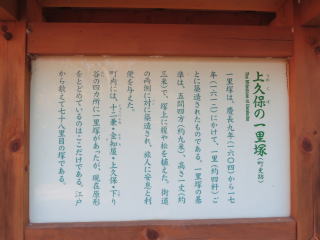 上久保の一里塚（町史跡）
The Milestone of Uwakubo
一里塚は、慶長九年（一六〇四）から一七
年（一六一二）にかけて、一里（約四粁）ご
とに築造されたものである。一里塚の基
準は、五間四方（約九米）、高さ一丈（約
三米）で、塚上に榎や松を植えた。街道
の両側に対に築造され、旅人に安息と利
便を与えた。
町内には、十二兼・金知屋・上久保・下り
谷の四カ所に一里塚があったが、現在原形
をとどめているのはここだけである。江戸
から数えて七十八里目の塚である。